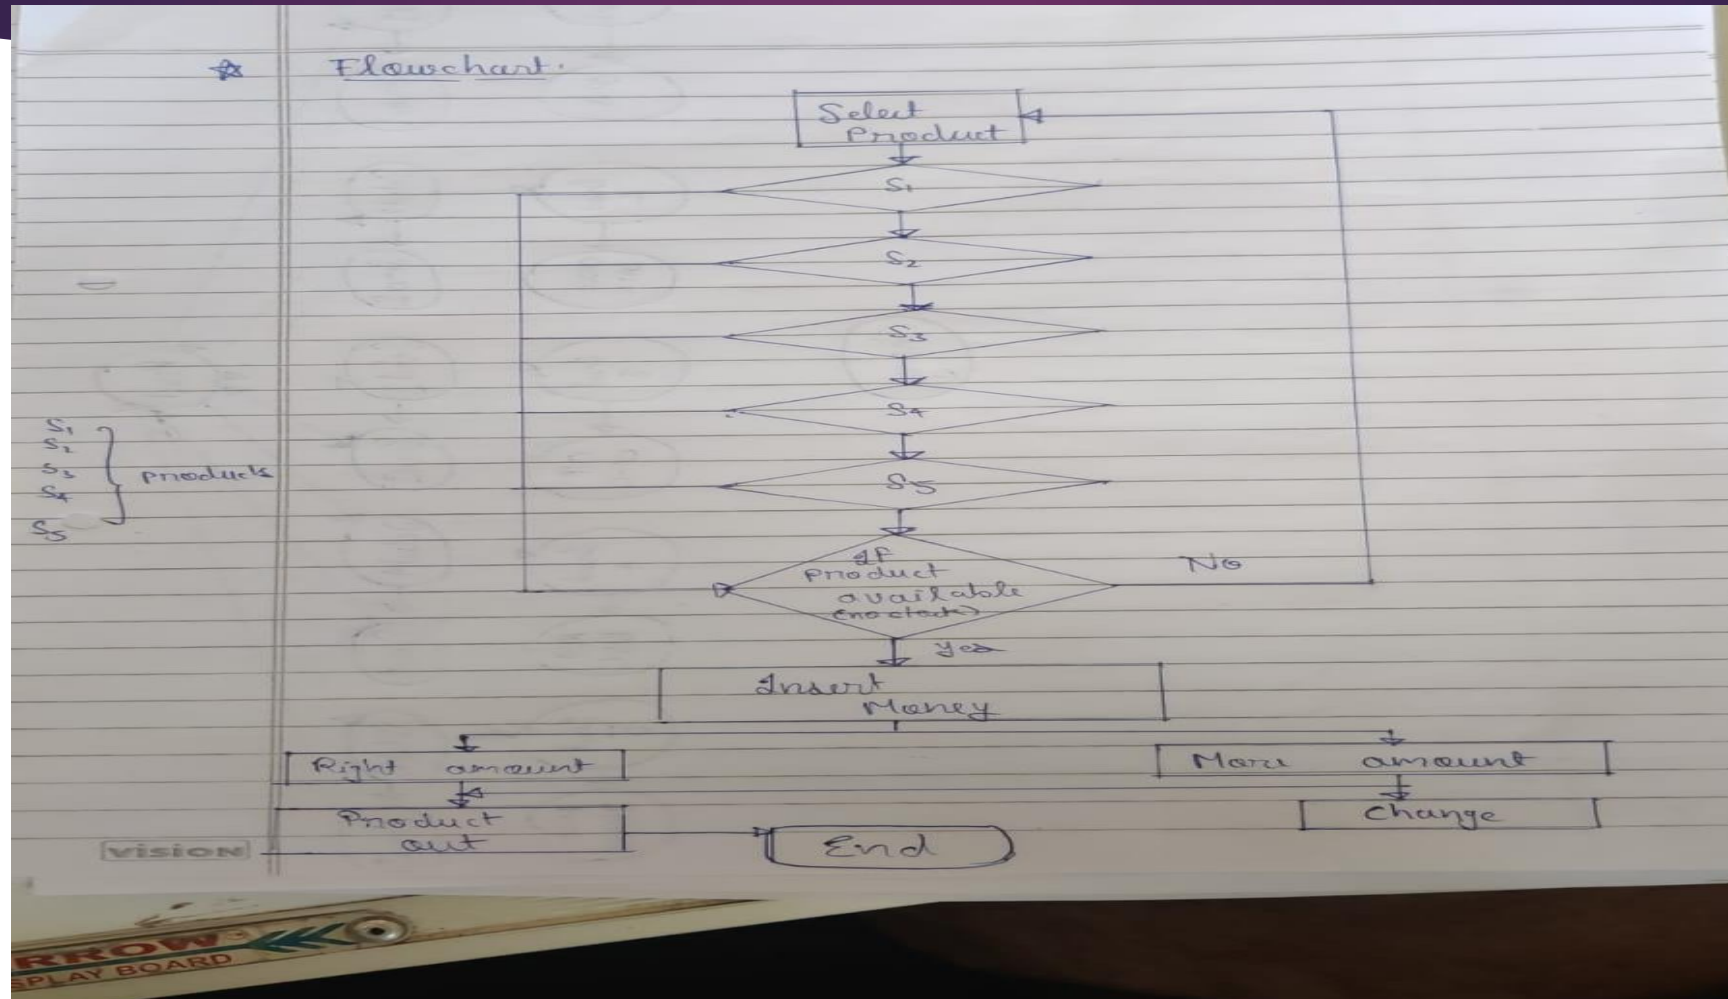 Flowchart.
Select
Product
S1
S2
S3
S4
S5
S1
S2
S3
S4
S5
Products
If
Product
available
No
Yes
Insert
Money
Right amount
More amount
Product
out
Change
End
VISION
RROW
SPLAY BOARD